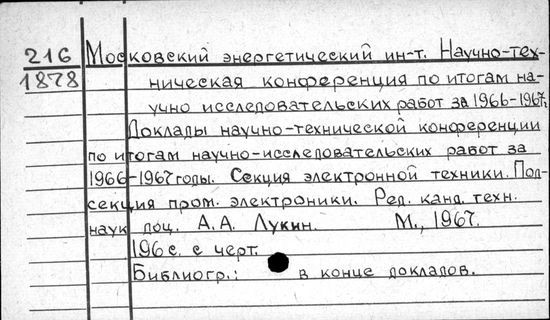 216
1878
Московский энергетический ин-т. Научно-тех-
ническая конференция по итогам на-
учно исследовательских работ за 1966-1967г.
Доклады научно-технической конференции
по итогам научно-исследовательских работ за
1966-1967 годы. Секция электронной техники. Под-
секция пром. электроники. Ред. канд. техн.
наук доц. А.А. Лукин. М., 1967.
196 с. с черт.
Библиогр.: в конце докладов.